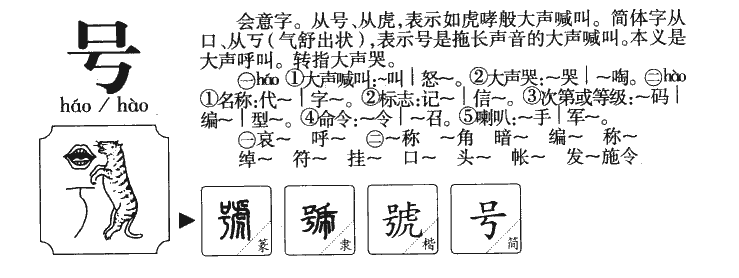 号
háo / hào
会意字。从号、从虎，表示如虎哮般大声喊叫。简体字从
口、从丂（气舒出状），表示号是拖长声音的大声喊叫。本义是
大声呼叫。转指大声哭。
㊀háo ①大声喊叫：~叫｜怒~。②大声哭：~哭｜~啕。㊁hào
①名称：代~｜字~。②标志：记~｜信~。③次第或等级：~码｜
编~｜型~。④命令：~令｜~召。⑤喇叭：~手｜军~。
㊀哀~ 呼~ ㊁~称 ~角 暗~ 编~ 称~
绰~ 符~ 挂~ 口~ 头~ 帐~ 发~施令
號 篆
號 隶
號 楷
号 简